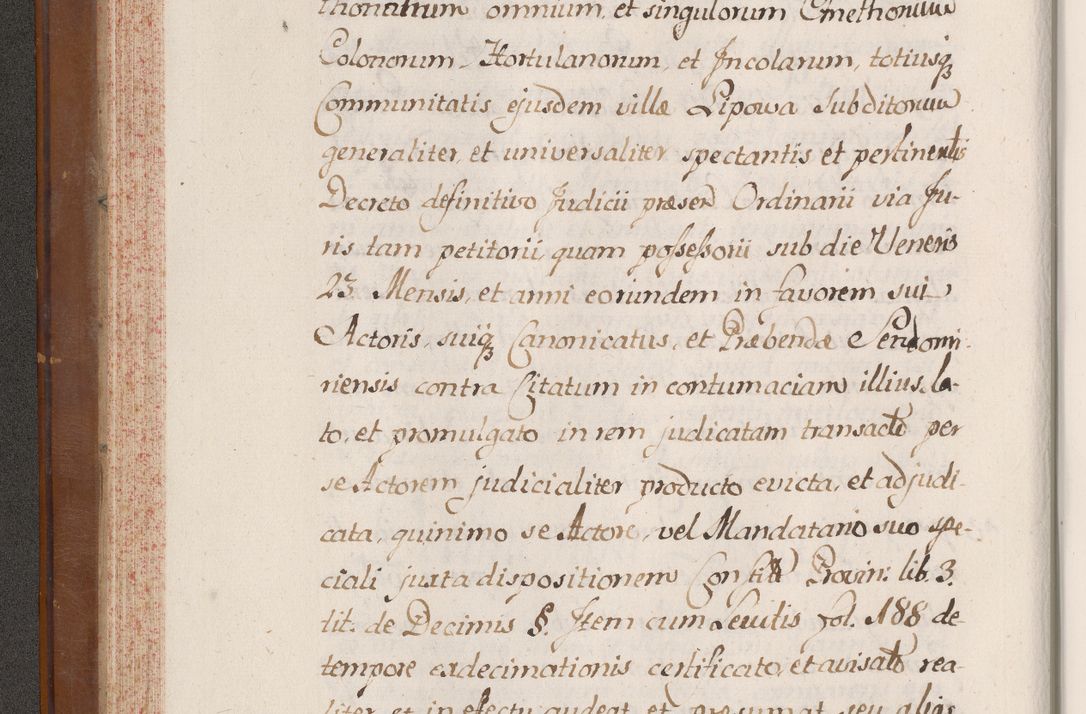 omnium, et singulorum Cmethonum
Colonorum, Hortulanorum, et Incolarum, totiusq;
Communitatis ejusdem villæ Lipowa Subditorum
generaliter, et universaliter spectantis et pertinentis
Decreto definitivo Judicii præsen Ordinarii via Ju-
ris tam petitorii, quam possessorii sub die Veneris
23 Mensis, et anni eorundem in favorem sui,
Actoris, suiq; Canonicatus, et Præbendæ Sendomi-
riensis contra Citatum in contumaciam illius la-
to, et promulgato in rem judicatam transacto per
se Actorem judicialiter producto evicta, et adjudi-
cata, quinimo se Actore, vel Mandatario suo spe-
ciali juxta dispositionem Constit Provin: lib. 3.
tit. de Decimis §. Item cum Levitis fol. 188 de
tempore exdecimationis certificato, et avisato rea-
liter et in effectu audeat et præsumat seu alias